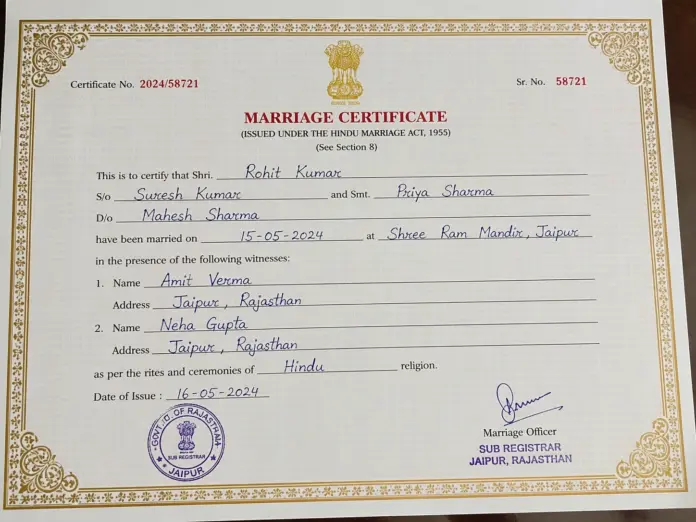 Certificate No. 2024/58721 Sr. No. 58721
MARRIAGE CERTIFICATE
(ISSUED UNDER THE HINDU MARRIAGE ACT, 1955)
(See Section 8)
This is to certify that Shri. Rohit Kumar
S/o Suresh Kumar and Smt. Priya Sharma
D/o Mahesh Sharma
have been married on 15-05-2024 at Shree Ram Mandir, Jaipur
in the presence of the following witnesses:
1. Name Amit Verma
Address Jaipur, Rajasthan
2. Name Neha Gupta
Address Jaipur, Rajasthan
as per the rites and ceremonies of Hindu religion.
Date of Issue : 16-05-2024
GOVT. OF RAJASTHAN
SUB REGISTRAR
JAIPUR
Marriage Officer
SUB REGISTRAR
JAIPUR, RAJASTHAN